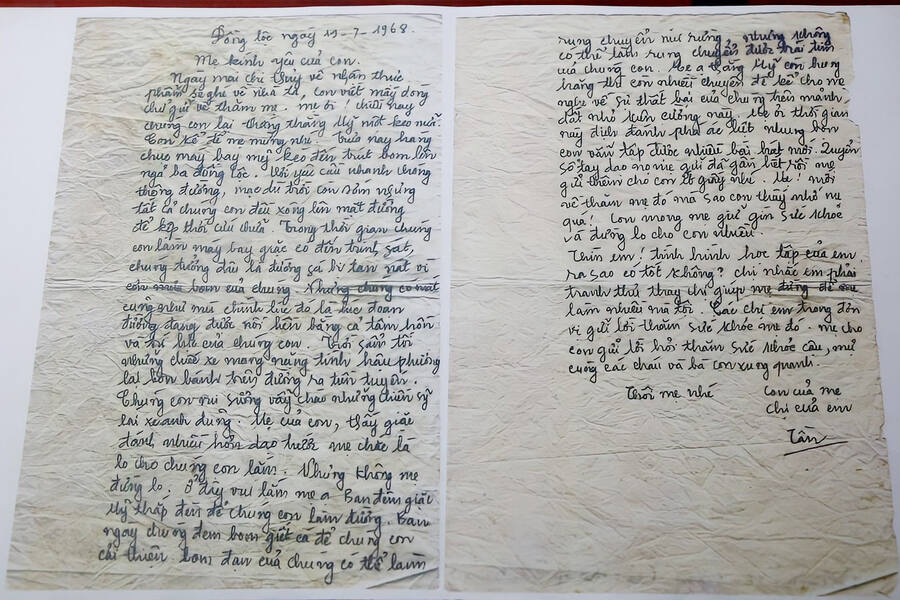 Đồng lộc ngày 19-7-1968.
Mẹ kính yêu của con.
Ngày mai chú về nhận thực
phẩm sẽ ghé về nhà ta, con viết mấy dòng
chữ gửi về thăm mẹ. mẹ ơi! chiều nay
chúng con lại thắng thằng Mỹ một keo nữa.
Con kể để mẹ mừng nhé. Trưa nay hàng
chục máy bay mỹ kéo đến trút bom lên
ngã ba đồng lộc. Với yêu cầu nhanh chóng
thông đường, mặc dù trời còn sớm nhưng
tất cả chúng con đều xông lên mặt đường
để kịp thời cứu chữa. Trong thời gian chúng
con làm máy bay giặc có đến trinh sát,
chúng tưởng đâu là đường sá bị tan nát vì
bom của chúng. Nhưng chúng có
cũng như mù chính lúc đó là lúc đoạn
đường đang được nối liền bằng cả tâm hồn
và trí lực của chúng con. Trời sẩm tối
những chiếc xe mang nặng tình hậu phương
lại bon bánh trên đường ra tiền tuyến.
Chúng con vui sướng vẫy chào những chiến sỹ
lái xe anh dũng. Mẹ của con, thấy giặc
đánh nhiều hơn dạo trước mẹ chắc là
lo cho chúng con lắm. Nhưng không mẹ
đừng lo. Ở đây vui lắm mẹ ạ Ban đêm giặc
Mỹ thắp đèn để chúng con làm đường. Ban
ngày chúng đem bom giết cá để chúng con
cải thiện bom đạn của chúng có thể làm
rung chuyển núi rừng nhưng không
có thể làm rung chuyển được trái tim
của chúng con. Mẹ ạ thằng Mỹ còn hung
hăng thì còn nhiều chuyện để kể cho mẹ
nghe về sự thất bại của chúng trên mảnh
đất nhỏ kiên cường này. Mẹ ơi thời gian
này địch đánh phá ác liệt nhưng bọn
con vẫn tập được nhiều bài hát mới. Quyển
sổ tay dạo nọ mẹ gửi đã gần hết rồi mẹ
gửi thêm cho con ít giấy nhé. Mẹ! mới
về thăm mẹ đó mà sao con thấy nhớ mẹ
quá! Con mong mẹ giữ gìn sức khỏe
và đừng lo cho con nhiều.
Thìn em! tình hình học tập của em
ra sao có tốt không? chị nhắc em phải
tranh thủ thay chị giúp mẹ đừng để mẹ
làm nhiều mà tội. Các chị em trong đơn
vị gửi lời thăm sức khỏe mẹ đó. mẹ cho
con gửi lời hỏi thăm sức khỏe cậu, mự
cùng các cháu và bà con xung quanh.
Thôi mẹ nhé
Con của mẹ
Chị của em
Tần